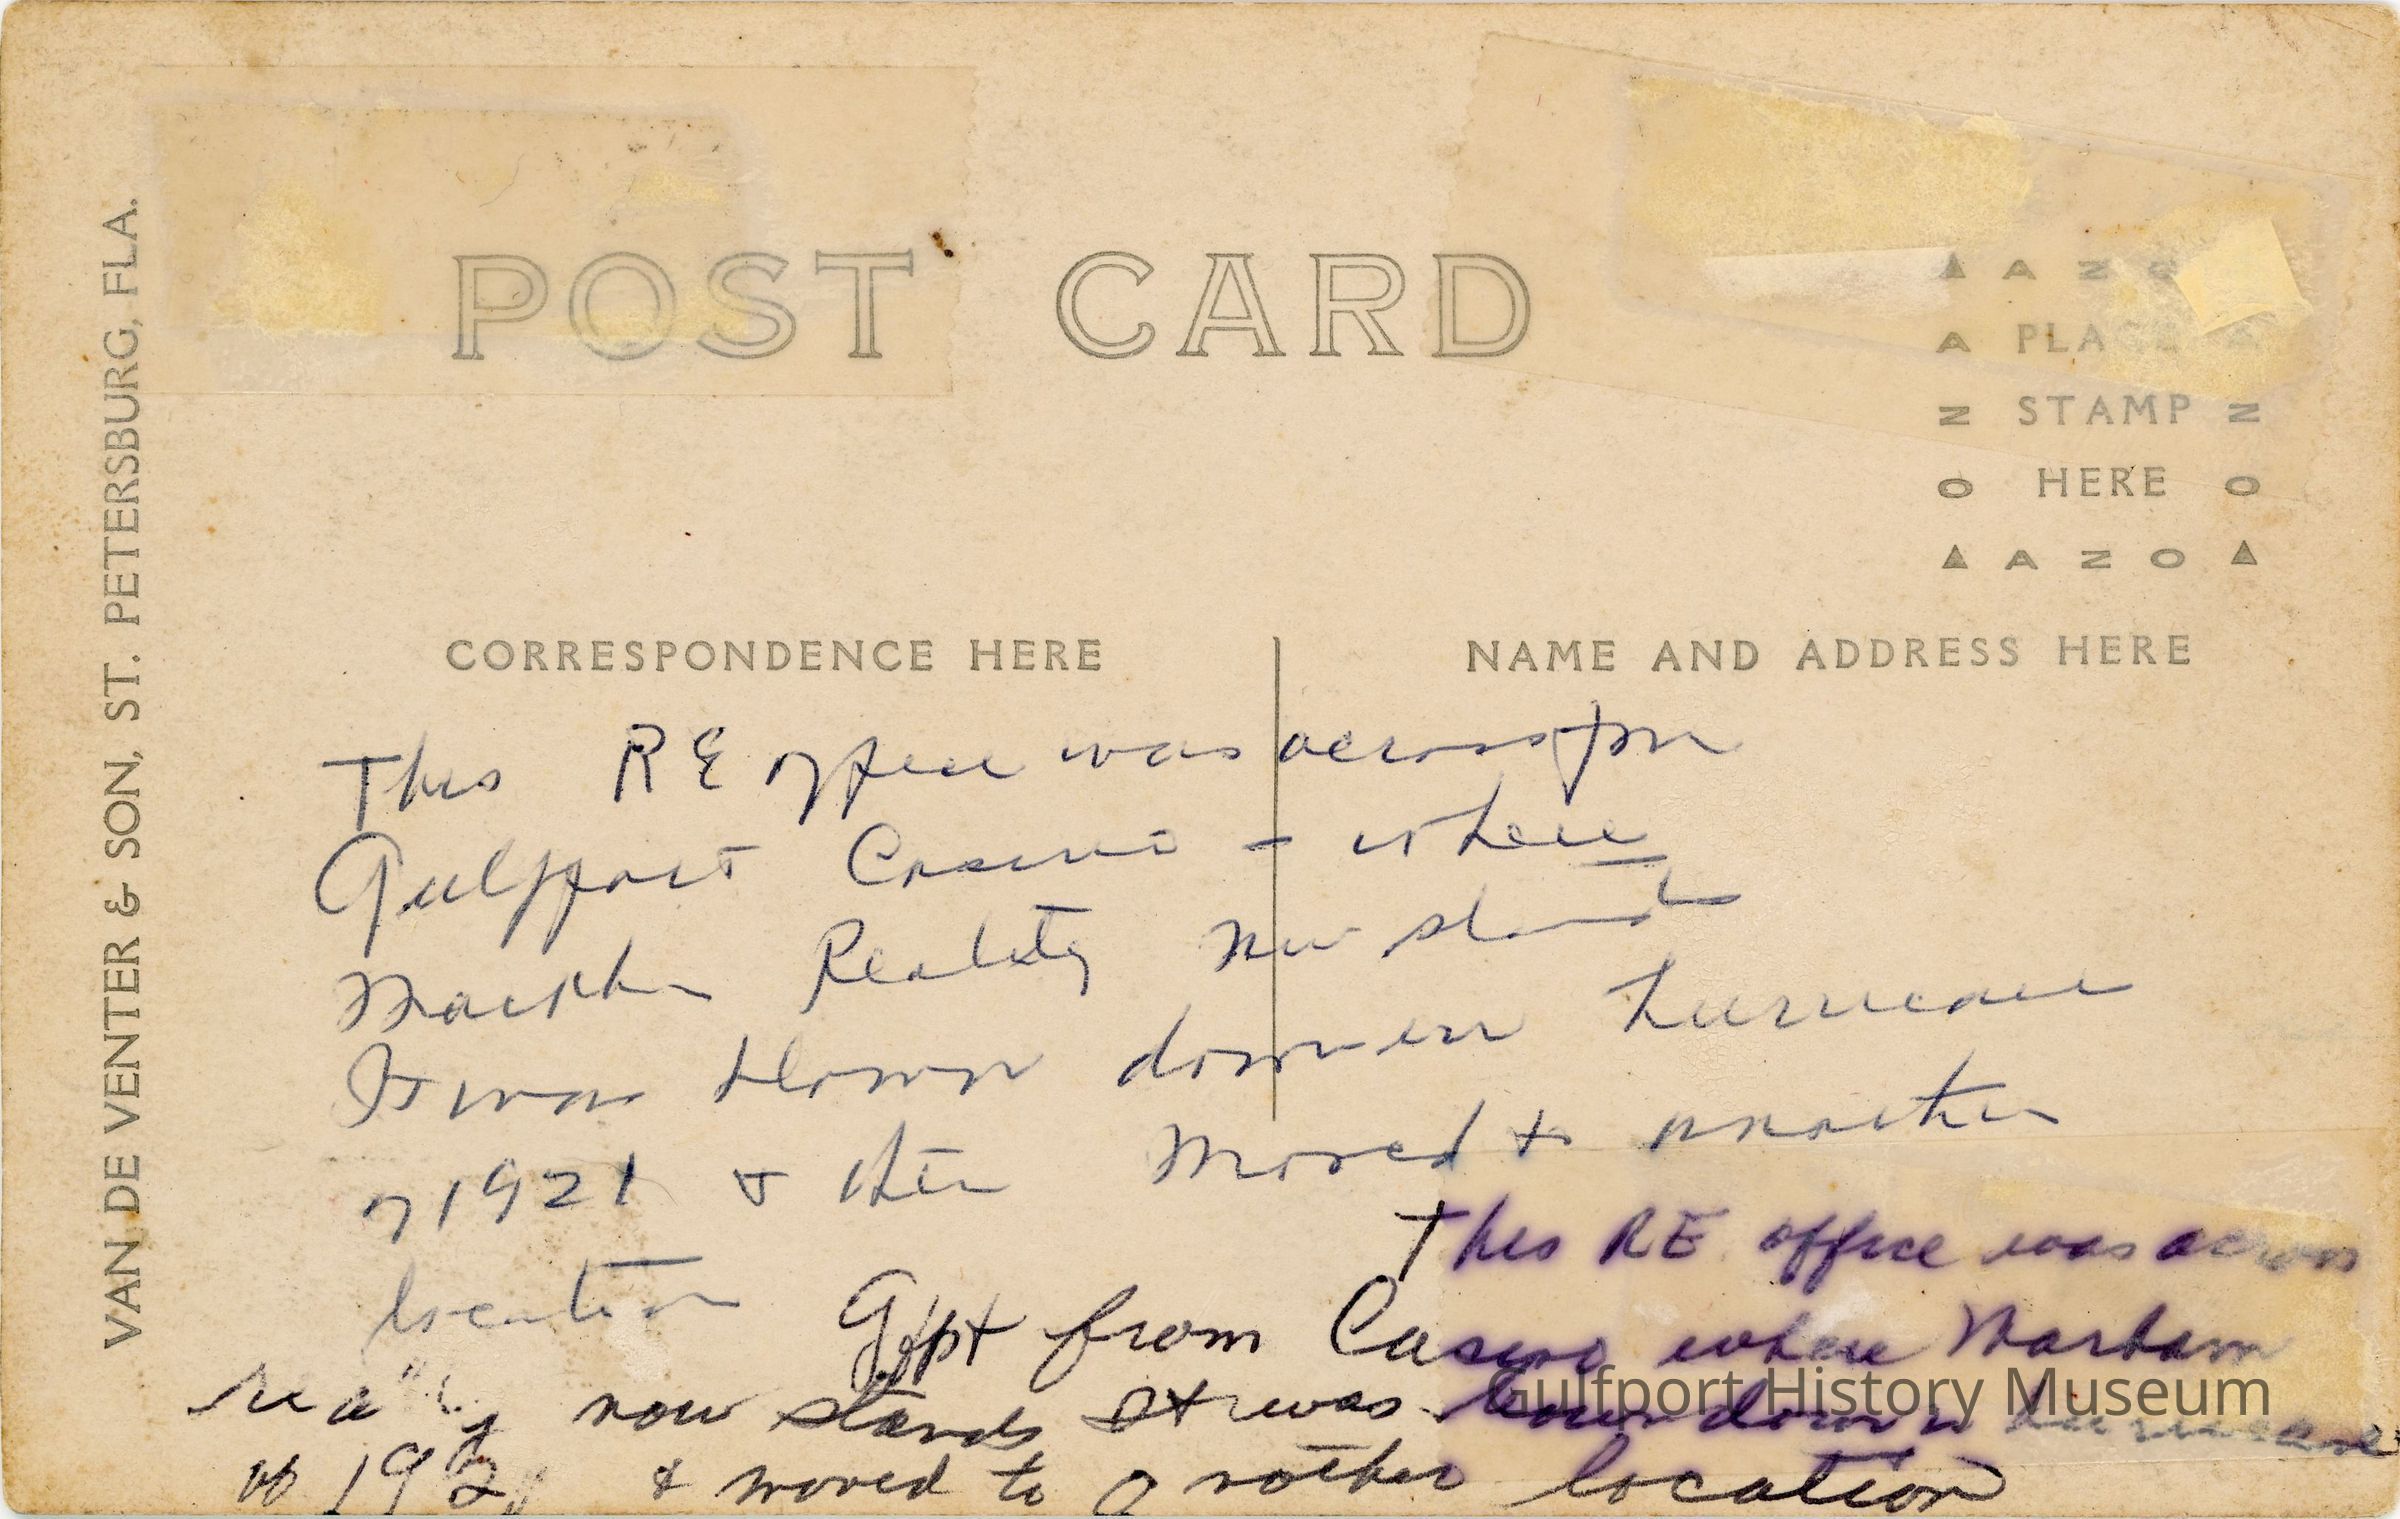 VAN DE VENTER & SON, ST. PETERSBURG, FLA.
POST CARD
AZO
A PLACE A
N STAMP N
O HERE O
AZO
CORRESPONDENCE HERE
NAME AND ADDRESS HERE
This RE office was across from
Gulfport Casino - where
Realty now stands
It was blown down in hurricane
of 1921 & then moved to another
location
This RE office was across
Gfpt from Casino where
realty now stands It was down hurricane
of 1921 & moved to another location
Gulfport History Museum